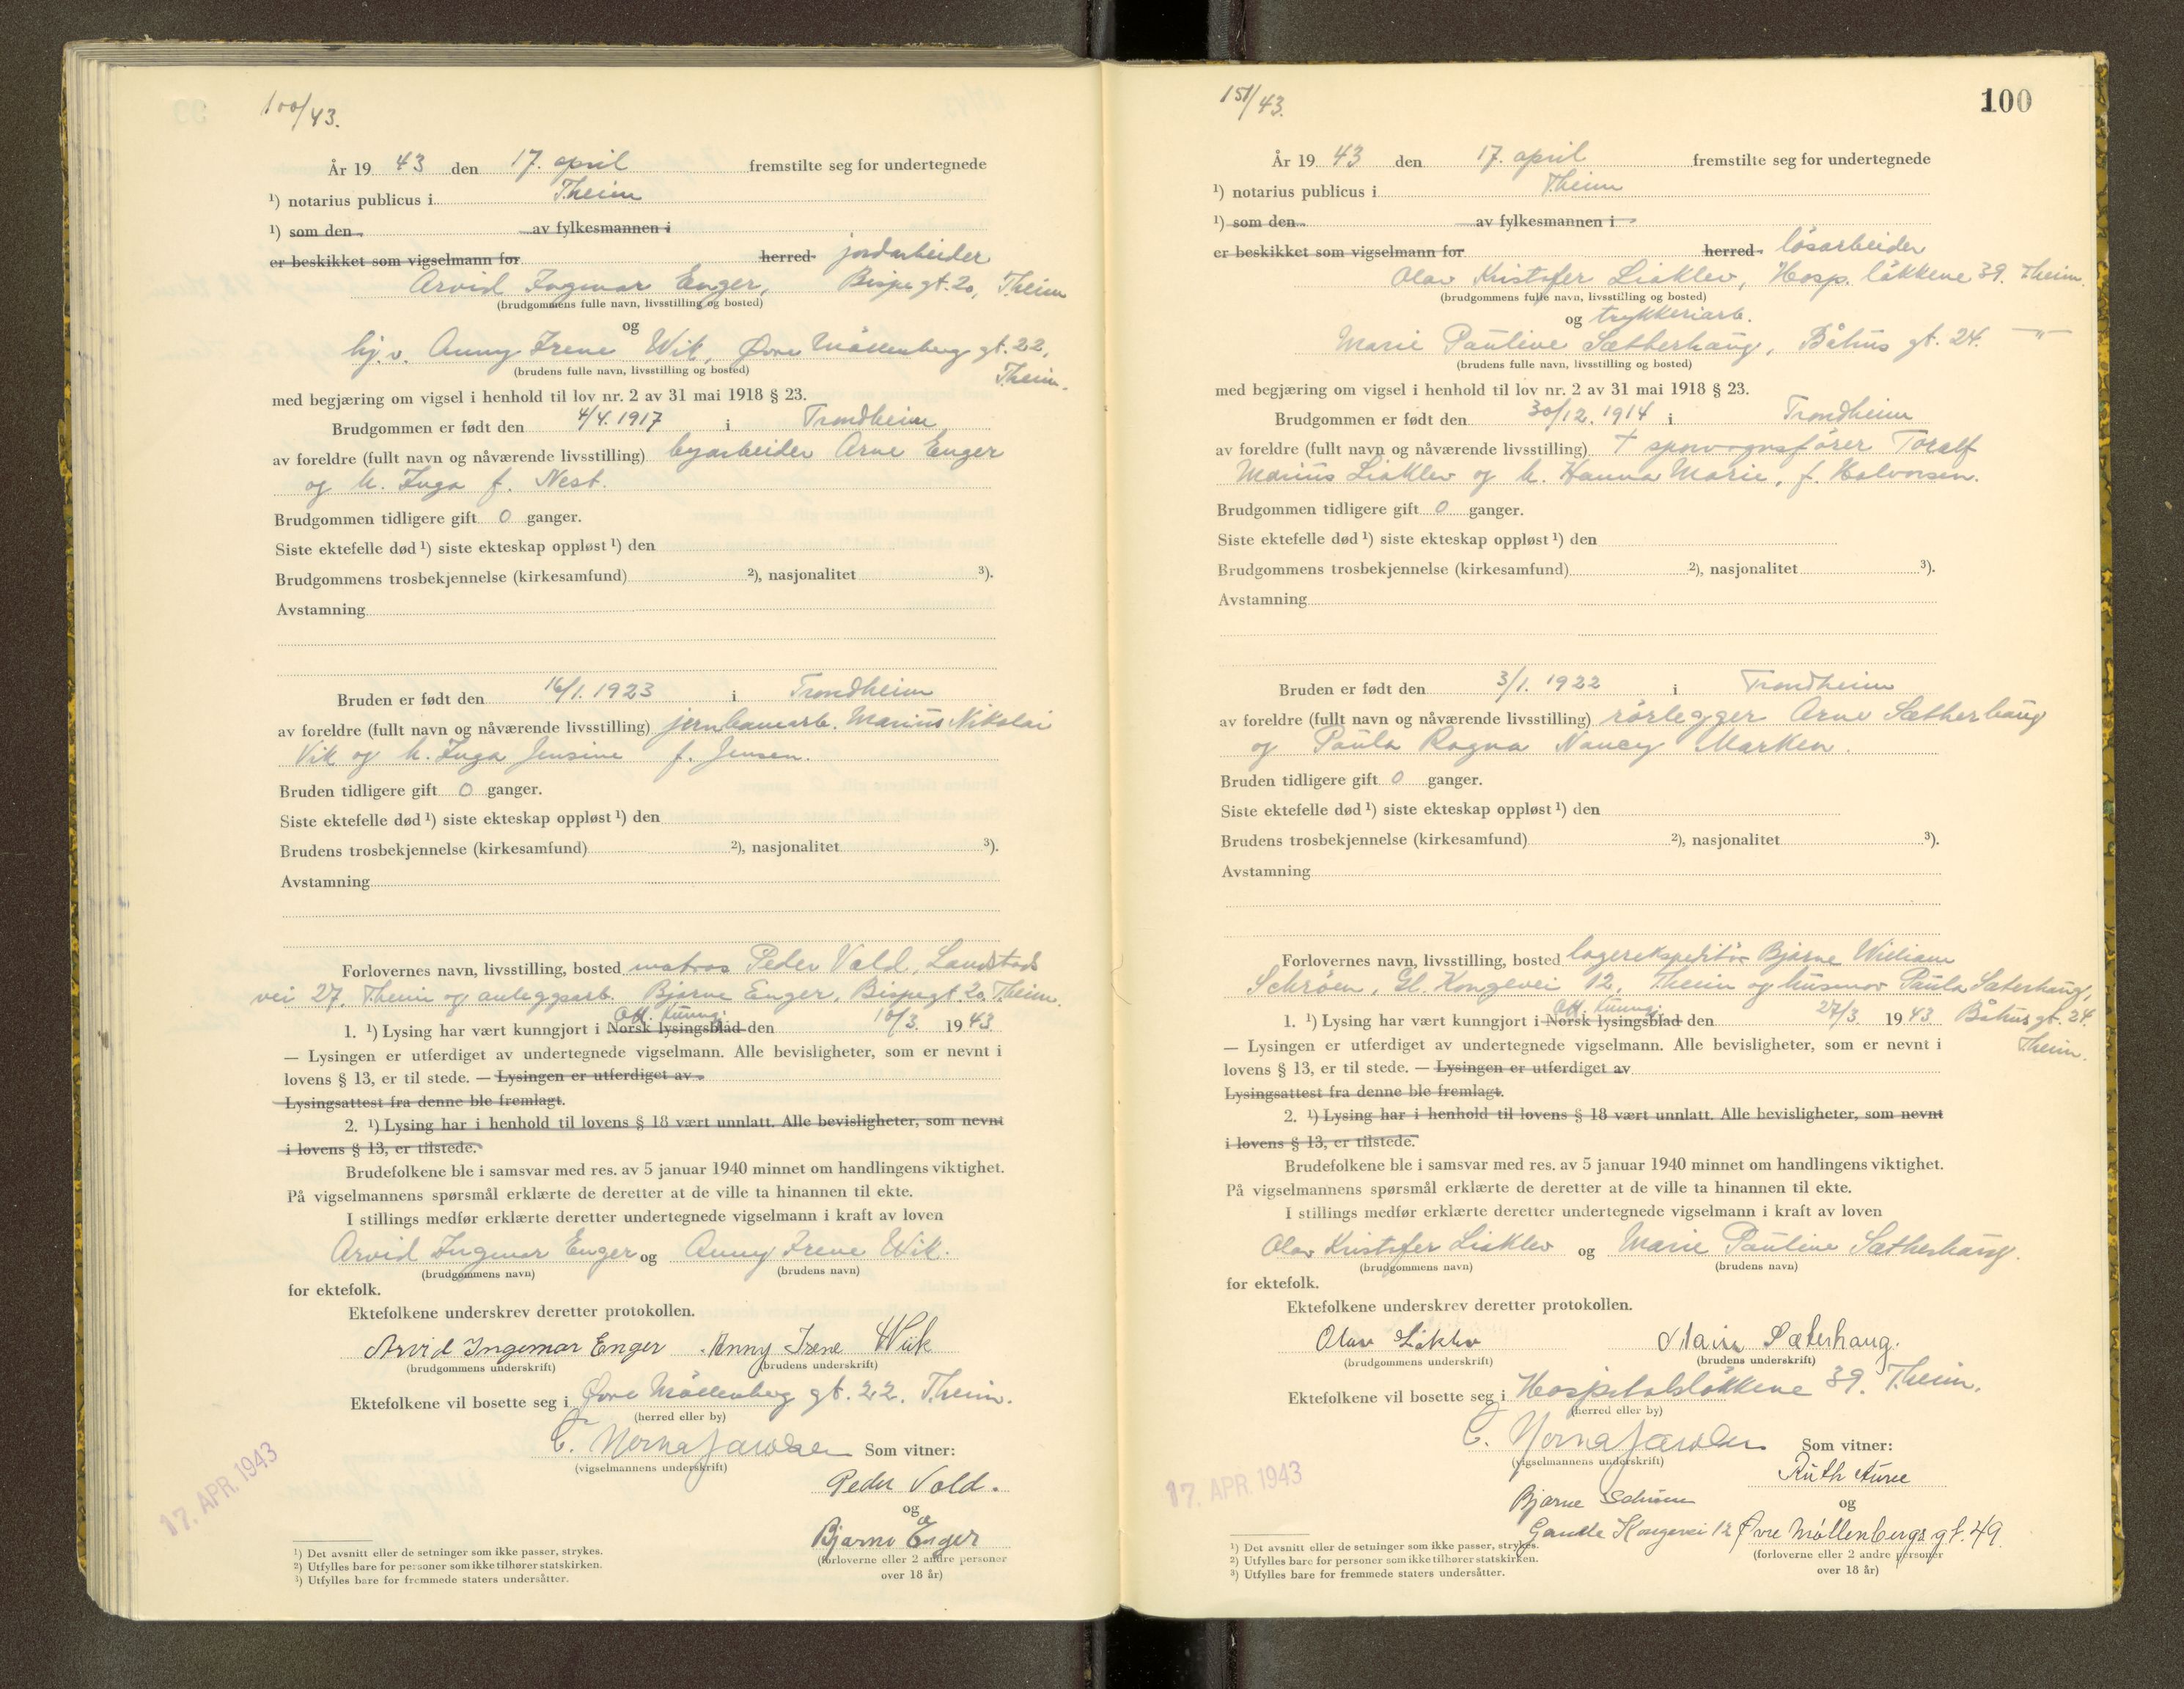 100/43.
År 19 43 den 17. april fremstilte seg for undertegnede
¹) notarius publicus i Theim
¹) som den av fylkesmannen i
er beskikket som vigselmann for herred. jordarbeider
Arvid Ingmar Enger, Bispegt. 20, Theim
(brudgommens fulle navn, livsstilling og bosted)
og
hj.v. Anny Irene Wik, Øvre Möllenberg gt. 22,
(brudens fulle navn, livsstilling og bosted)
Theim.
med begjæring om vigsel i henhold til lov nr. 2 av 31 mai 1918 § 23.
Brudgommen er født den 4/4. 1917 i Trondheim
av foreldre (fullt navn og nåværende livsstilling) byarbeider Arne Enger
og h. Inga f. Nest.
Brudgommen tidligere gift 0 ganger.
Siste ektefelle død ¹) siste ekteskap oppløst ¹) den
Brudgommens trosbekjennelse (kirkesamfund) ²), nasjonalitet ³).
Avstamning
Bruden er født den 16/1. 1923 i Trondheim
av foreldre (fullt navn og nåværende livsstilling) jernbanearb. Marius Nikolai
Vik og h. Inga Jensine f. Jensen.
Bruden tidligere gift 0 ganger.
Siste ektefelle død ¹) siste ekteskap oppløst ¹) den
Brudens trosbekjennelse (kirkesamfund) ²), nasjonalitet ³).
Avstamning
Forlovernes navn, livsstilling, bosted matros Peder Vald, Landstads
vei 27, Theim og anleggsarb. Bjarne Enger, Bispegt. 20, Theim.
Off. kunng.
1. ¹) Lysing har vært kunngjort i Norsk lysingsblad den 10/3. 19 43
— Lysingen er utferdiget av undertegnede vigselmann. Alle bevisligheter, som er nevnt i
lovens § 13, er til stede. — Lysingen er utferdiget av
Lysingsattest fra denne ble fremlagt.
2. ¹) Lysing har i henhold til lovens § 18 vært unnlatt. Alle bevisligheter, som nevnt
i lovens § 13, er tilstede.
Brudefolkene ble i samsvar med res. av 5 januar 1940 minnet om handlingens viktighet.
På vigselmannens spørsmål erklærte de deretter at de ville ta hinannen til ekte.
I stillings medfør erklærte deretter undertegnede vigselmann i kraft av loven
Arvid Ingmar Enger og Anny Irene Wik.
(brudgommens navn) (brudens navn)
for ektefolk.
Ektefolkene underskrev deretter protokollen.
Arvid Ingemar Enger Anny Irene Wiik
(brudgommens underskrift) (brudens underskrift)
Ektefolkene vil bosette seg i Øvre Möllenberg gt. 22. Theim.
(herred eller by)
Som vitner:
(vigselmannens underskrift)
Peder Vold.
17. APR. 1943
og
Bjarne Enger
(forloverne eller 2 andre personer
over 18 år)
¹) Det avsnitt eller de setninger som ikke passer, strykes.
²) Utfylles bare for personer som ikke tilhører statskirken.
³) Utfylles bare for fremmede staters undersåtter.
151/43.
100
År 19 43 den 17. april fremstilte seg for undertegnede
¹) notarius publicus i Theim
¹) som den av fylkesmannen i
er beskikket som vigselmann for herred. lösarbeider
Olav Kristofer Liaklev, Hosp. løkkene 39. Theim.
(brudgommens fulle navn, livsstilling og bosted)
og trykkeriarb.
Marie Pauline Sætherhaug, Båhus gt. 24. —"—
(brudens fulle navn, livsstilling og bosted)
med begjæring om vigsel i henhold til lov nr. 2 av 31 mai 1918 § 23.
Brudgommen er født den 30/12. 1914 i Trondheim
av foreldre (fullt navn og nåværende livsstilling) † sporvognsfører Toralf
Marius Liaklev og h. Hanna Marie, f. Halvorsen.
Brudgommen tidligere gift 0 ganger.
Siste ektefelle død ¹) siste ekteskap oppløst ¹) den
Brudgommens trosbekjennelse (kirkesamfund) ²), nasjonalitet ³).
Avstamning
Bruden er født den 3/1. 1922 i Trondheim
av foreldre (fullt navn og nåværende livsstilling) rörlegger Arne Sætherhaug
og Paula Ragna Nancy Marken.
Bruden tidligere gift 0 ganger.
Siste ektefelle død ¹) siste ekteskap oppløst ¹) den
Brudens trosbekjennelse (kirkesamfund) ²), nasjonalitet ³).
Avstamning
Forlovernes navn, livsstilling, bosted lagerekspeditör Bjarne William
Schröen, Gl. Kongevei 12, Theim og husmor Paula Sæterhaug,
Off. kunng.
1. ¹) Lysing har vært kunngjort i Norsk lysingsblad den 27/3. 19 43. Båhus gt. 24.
Theim.
— Lysingen er utferdiget av undertegnede vigselmann. Alle bevisligheter, som er nevnt i
lovens § 13, er til stede. — Lysingen er utferdiget av
Lysingsattest fra denne ble fremlagt.
2. ¹) Lysing har i henhold til lovens § 18 vært unnlatt. Alle bevisligheter, som nevnt
i lovens § 13, er tilstede.
Brudefolkene ble i samsvar med res. av 5 januar 1940 minnet om handlingens viktighet.
På vigselmannens spørsmål erklærte de deretter at de ville ta hinannen til ekte.
I stillings medfør erklærte deretter undertegnede vigselmann i kraft av loven
Olav Kristofer Liaklev og Marie Pauline Sætherhaug.
(brudgommens navn) (brudens navn)
for ektefolk.
Ektefolkene underskrev deretter protokollen.
Olav Liklev Marie Sæterhaug.
(brudgommens underskrift) (brudens underskrift)
Ektefolkene vil bosette seg i Hospitalsløkkene 39. Theim.
(herred eller by)
Som vitner:
(vigselmannens underskrift)
Ruth Aune
17. APR. 1943
Bjarne Schrøen
og
Gamle Kongevei 12 Øvre Möllenbergs gt. 49.
(forloverne eller 2 andre personer
over 18 år)
¹) Det avsnitt eller de setninger som ikke passer, strykes.
²) Utfylles bare for personer som ikke tilhører statskirken.
³) Utfylles bare for fremmede staters undersåtter.